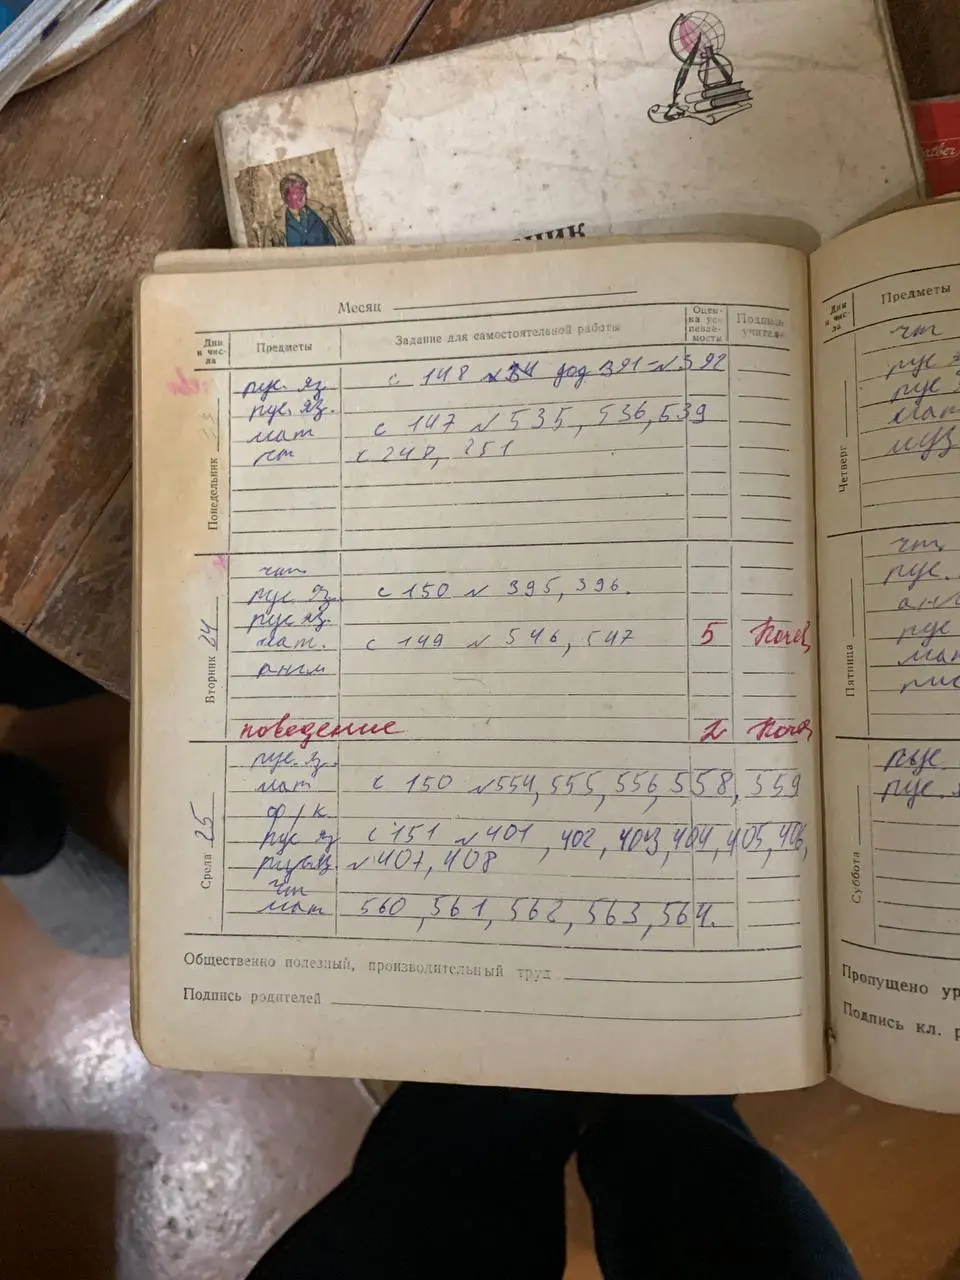 НИК
Месяц
Дни и чис-ла Предметы Задание для самостоятельной работы Оцен-ка ус-певае-мости Подпись учителя
Понедельник 23
рус. яз. с 148 391 - № 392
рус. яз.
мат с 147 № 535, 536, 539
чт с 248, 251
Вторник 24
чт
рус. яз. с 150 № 395, 396.
рус. яз.
мат. с 149 № 546, 547 5
англ
поведение 2
Среда 25
рус. яз.
мат с 150 № 554, 555, 556, 558, 559
ф/к
рус яз с 151 № 401, 402, 403, 404, 405, 406,
рус яз № 407, 408
чт
мат 560, 561, 562, 563, 564.
Общественно полезный, производительный труд
Подпись родителей
Дни и числа Предметы
Четверг
чт
рус
рус я
мат
муз
Пятница
чт
рус.
анг
рус
мат
рис
Суббота
рус
рус. я
Пропущено ур
Подпись кл. р